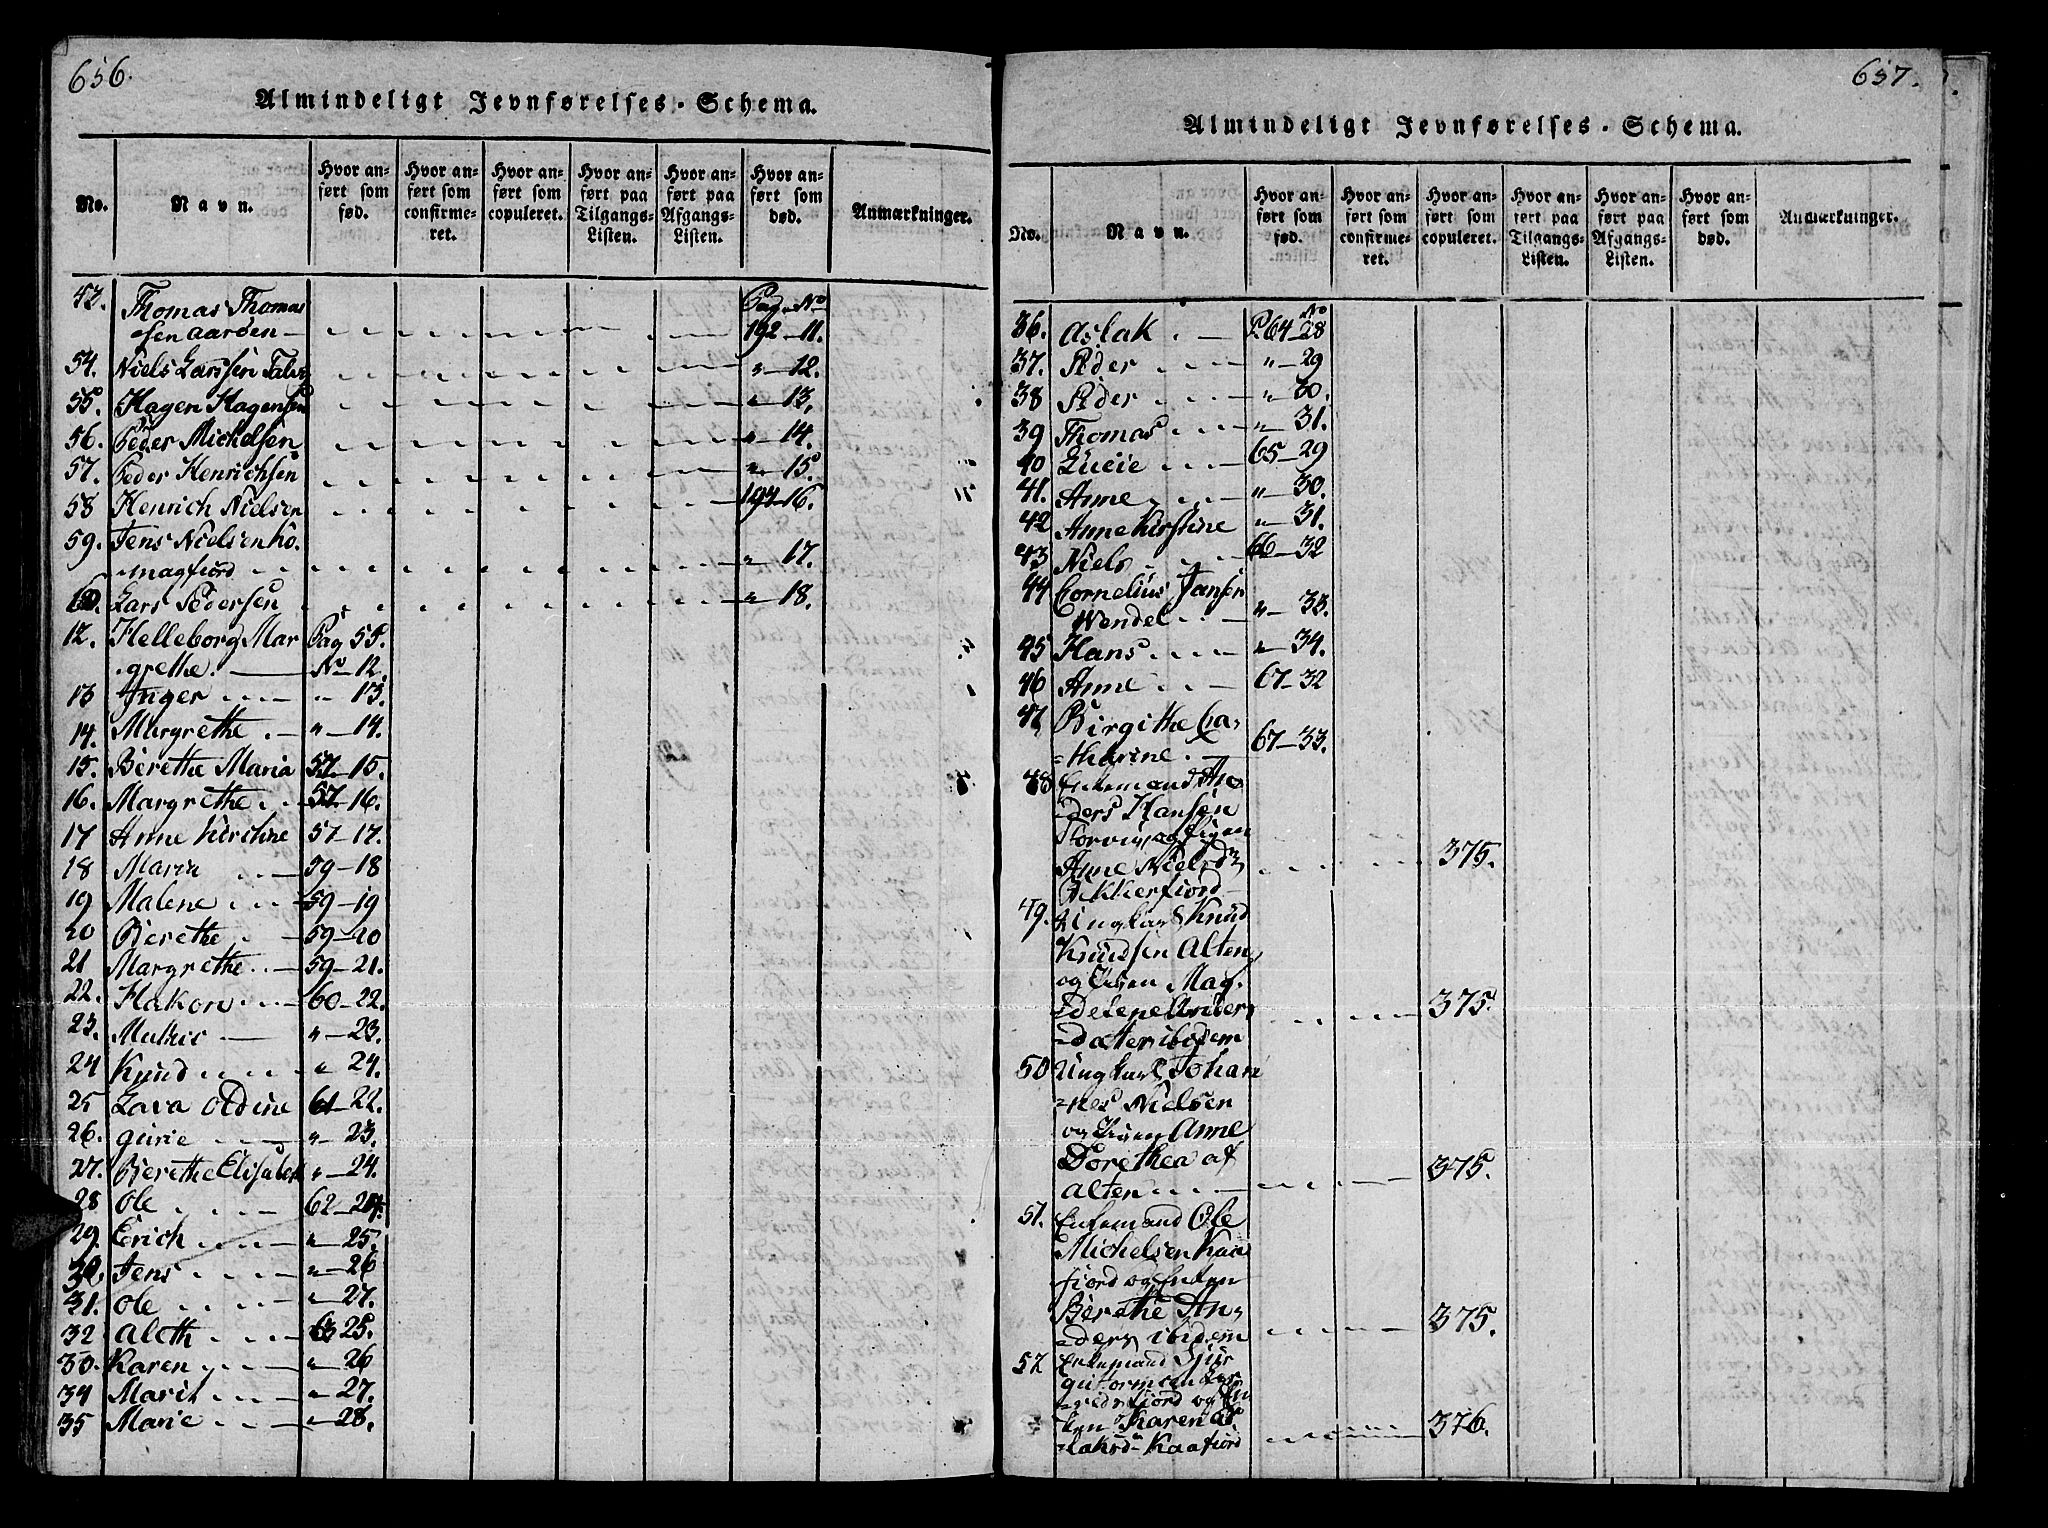 656.
Almindeligt Jevnførelses-Schema.
No.
Navn.
Hvor an-
ført som
fød.
Hvor an-
ført som
confirme-
ret.
Hvor an-
ført som
copuleret.
Hvor an-
ført paa
Tilgangs-
Listen.
Hvor an-
ført paa
Afgangs-
Listen.
Hvor an-
ført som
død.
Anmærkninger.
53. Thomas Thomas Pag. No
sen aaroen 192-11.
54. Niels Larssen Talv " 12.
55. Hagen Hagensen " 13.
56. Peder Michelsen " 14.
57. Peder Henrichsen " 15
58 Henrich Nielsen 193-16.
59. Jens Nielsen Ko-
magfiord " 17.
60. Lars Pedersen " 18.
12. Helleborg Mar Pag 55.
grethe. No 12.
13 Inger " 13.
14. Margrethe " 14.
15. Berethe Maria 57-15.
16. Margrethe 57-16.
17 Anne Kirstine 57-17.
18 Maria 59-18
19 Malene 59-19
20 Berethe 59-20
21 Margrethe 59-21.
22. Hakon 60-22.
23. Mathis " 23.
24 Knud " 24.
25 Lava oldine 61-22.
26. gurie " 23.
27. Berethe Elisabeth " 24.
28 Ole 62-24.
29. Erich " 25.
30 Jens " 26
31. Ole " 27.
32 aleth 63 25.
33. Karen " 26
34 Marit " 27.
35 Marie " 28.
657.
Almindeligt Jevnførelses-Schema.
No.
Navn.
Hvor an-
ført som
fød.
Hvor an-
ført som
confirme-
ret.
Hvor an-
ført som
copuleret.
Hvor an-
ført paa
Tilgangs-
Listen.
Hvor an-
ført paa
Afgangs-
Listen.
Hvor an-
ført som
død.
Anmærkninger.
No
36. aslak P. 64-28
37. Peder " 29
38 Peder " 30.
39 Thomas " 31.
40 Lucie 65-29
41. Anne " 30.
42 Anne Kirstine " 31.
43 Niels 66-32
44 Cornelius Jansen
Wendel " 33.
45 Hans " 34.
46 Anne 67-32
47 Birgithe Ca-
tharine 67-33.
48 Enkemand An-
ders Hansen
og Pigen
Anne Nielsd
Bekkerfiord 375.
49. Ungkarl Knud
Knudsen Alten
og Pigen Mag-
delene Anders
datter ibidem 375.
50 Ungkarl Johan
nes Nielsen
og Pigen Anne
Dorethea af
alten 375.
51. Enkemand Ole
Michelsen Kaa
fjord og Enken
Berethe An-
ders ibidem 375.
52 Enkemand Sjur
guttormsen
fjord og En
ken Karen as
laksd Kaafiord 376.